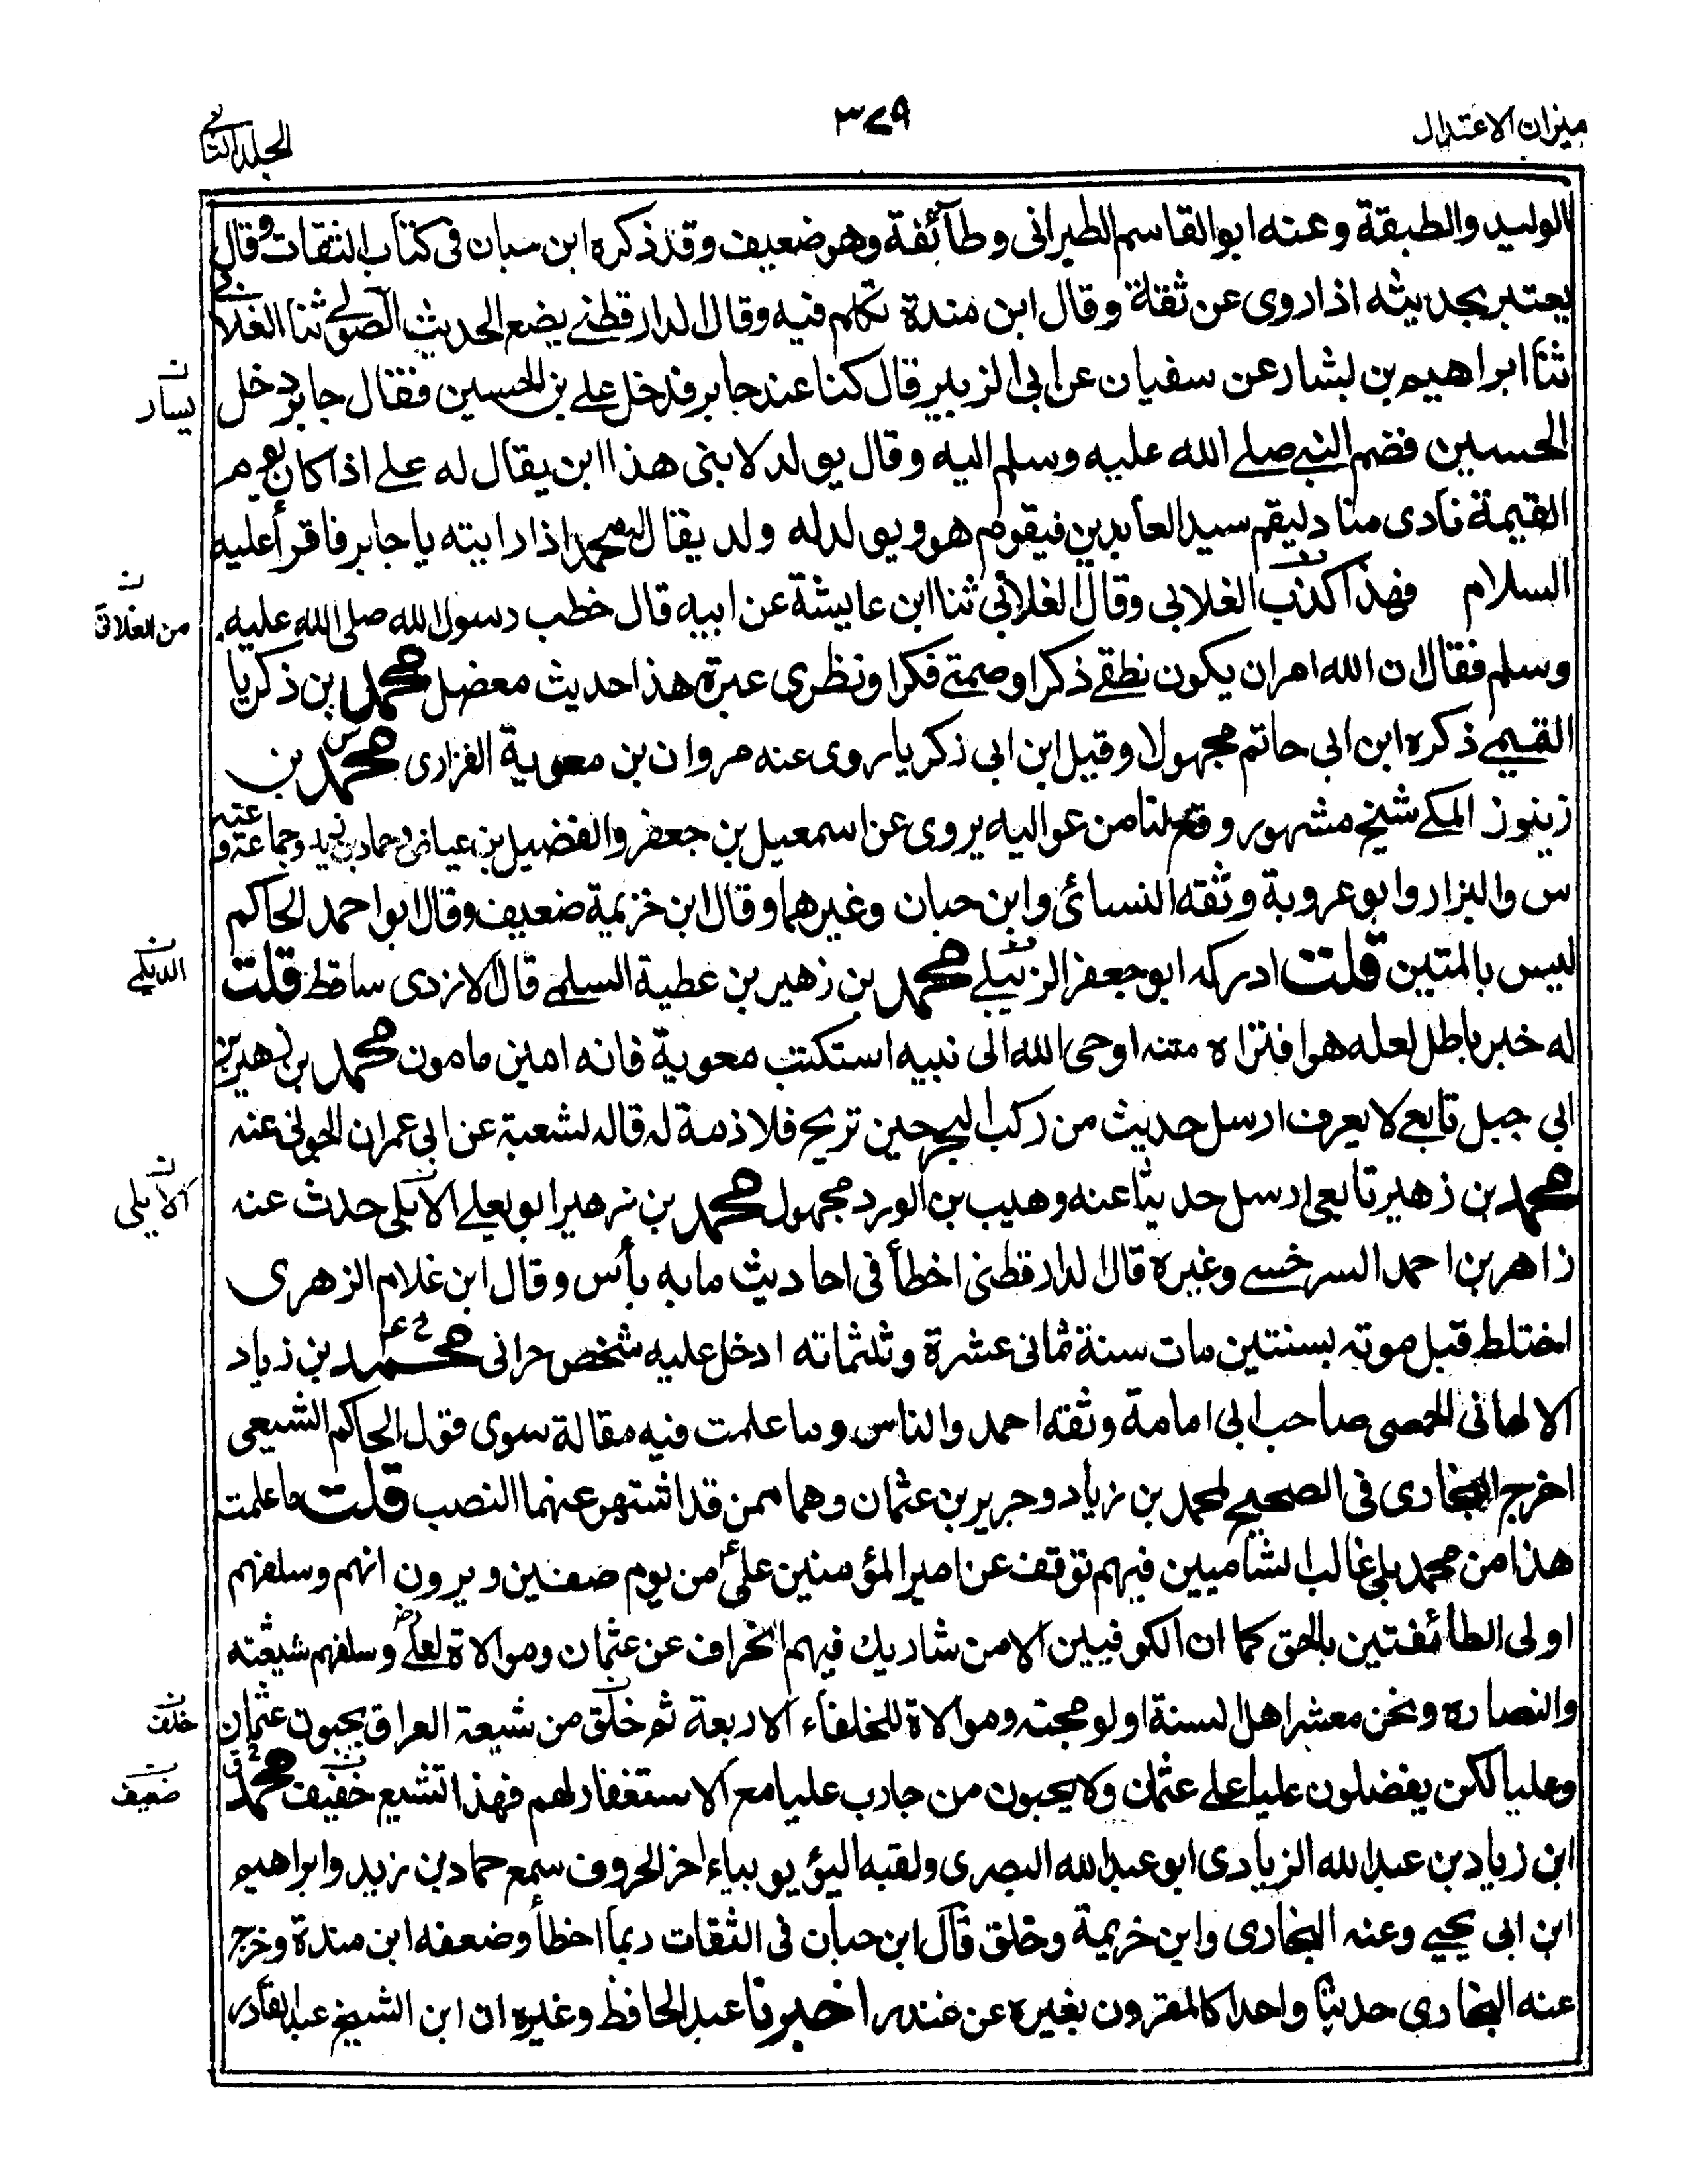 ميزان الاعتدال
٣٧٩
المجلد الثاني
الوليد والطبقة وعنه ابو القاسم الطبرانى وطآئفة وهو ضعيف وقد ذكره ابن حبان فى كتاب الثقات وقال
يعتبر بحديثه اذا روى عن ثقة وقال ابن مندة تكلم فيه وقال الدارقطنے يضع الحديث الصولے ثنا الغلابے
ثنا ابراهيم بن بشار عن سفيان عن ابى الزبير قال كنا عند جابر فدخل علے بن الحسين فقال جابر دخل
يسار
الحسين فضم النبے صلے الله عليه وسلم اليه وقال يولد لابنى هذا ابن يقال له علے اذا كان يوم
القيمة نادى مناد ليقم سيد العابدين فيقوم هو ويولد له ولد يقال له محمد اذا رايته يا جابر فاقرأ عليه
السلام فهذا كذب الغلابى وقال الغلابى ثنا ابن عايشة عن ابيه قال خطب رسول الله صلى الله عليه
من الغلابى
وسلم فقال ان الله امر ان يكون نطقے ذكرا وصمتے فكرا ونظرى عبرة هذا حديث معضل محمد بن ذكريا
القيمے ذكره ابن ابى حاتم مجهولا وقيل ابن ابى ذكريا روى عنه مروان بن معوية الفزارى محمد بن
زينوز المكے شيخ مشهور وقع لنا من عواليه يروى عن اسمعيل بن جعفر والفضيل بن عياض وحماد بن زيد وجماعة وعنه
س والبزار وابو عروبة وثقه النسائى وابن حبان وغيرهما وقال ابن خزيمة ضعيف وقال ابو احمد الحاكم
ليس بالمتين قلت ادركه ابو جعفر الزيلے محمد بن زهير بن عطية السلمے قال الازدى ساقط قلت
الديلے
له خبر باطل لعله هو افتراه متنه اوحى الله الى نبيه استكتب معوية فانه امين مامون محمد بن زهير بن
ابى جبل تابعے لا يعرف ارسل حديث من ركب البحر حين تريح فلا ذمة له قاله شعبة عن ابى عمران الجونى عنه
محمد بن زهير تابعى ارسل حديثا عنه وهيب بن الورد مجهول محمد بن زهير ابو يعلے الابلى حدث عنه
الايلى
زاهر بن احمد السرخسے وغيره قال الدارقطنى اخطأ فى احاديث ما به بأس وقال ابن غلام الزهرى
اختلط قبل موته بسنتين مات سنة ثمانى عشرة وثلثمائه ادخل عليه شخص حرانى محمد بن زياد
الالهانى الحمصى صاحب ابى امامة وثقه احمد والناس وما علمت فيه مقالة سوى قول الحاكم الشيعى
اخرج البخارى فى الصحيح لمحمد بن زياد وحرير بن عثمان وهما ممن قد اشتهر عنهما النصب قلت ما علمت
هذا من محمد بلى غالب الشاميين فيهم توقف عن امير المؤمنين على من يوم صفين ويرون انهم وسلفهم
اولى الطائفتين بالحق كما ان الكوفيين الا من شاء ربك فيهم انحراف عن عثمان وموالاة لعلے وسلفهم شيعته
وانصاره ونحن معشر اهل السنة اولو محبته وموالاة للخلفاء الاربعة ثم خلق من شيعة العراق يحبون عثمان
خلف
وعليا لكن يفضلون عليا علے عثمان ولا يحبون من حارب عليا مع الاستغفار لهم فهذا تشيع خفيف محمد
ضعيف
ابن زياد بن عبد الله الزيادى ابو عبد الله البصرى ولقبه اليؤيو بياء اخر الحروف سمع حماد بن زيد وابراهيم
ابن ابى يحيے وعنه البخارى وابن خزيمة وخلق قال ابن حبان فى الثقات ربما اخطأ وضعفه ابن مندة وخرج
عنه البخارى حديثا واحدا كالمقرون بغيره عن غندر اخبرنا عبد الحافظ وغيره ان ابن الشيخ عبد القادر